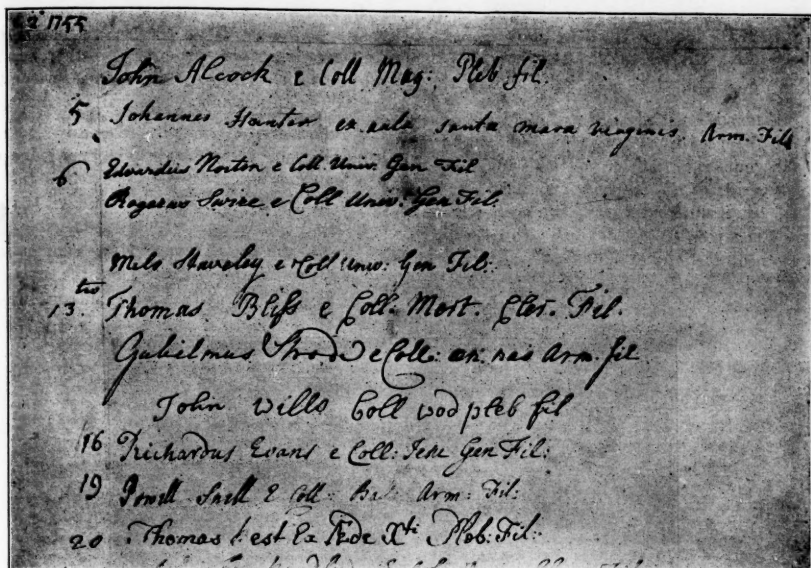 2° 1755
John Alcock e Coll Mag: Pleb fil.
5 Johannes Hunter ex aula santa mara virginis. Arm. Fils
6 Edvardus Norton e Coll. Univ. Gen Fil
Rogerus Swire e Coll Univ: Gen Fil.
Mils Staveley e Coll Univ: Gen Fil:
13 tio Thomas Bliss e Coll. Mert. Cler. Fil.
Gulielmus Strode e Coll: Arm. fil
John Wills Coll wod pleb fil
16 Richardus Evans e Coll: Jesu Gen Fil:
19 Powell Snell E Coll: Bal: Arm: Fil:
20 Thomas est Ex Æde Xti Pleb: Fil: